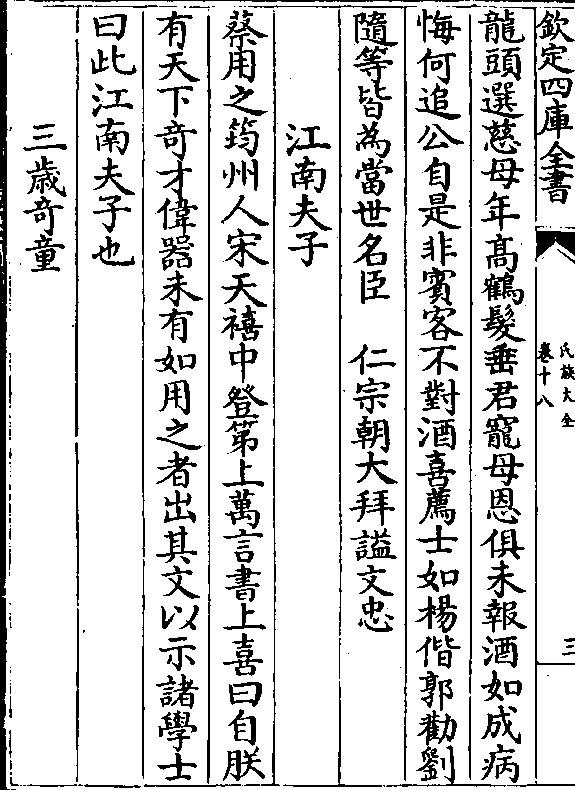 欽定四庫全書
氏族大全
卷十八
三
龍頭選慈母年髙鶴髮垂君寵母恩俱未報酒如成病
悔何追公自是非賓客不對酒喜薦士如楊偕郭勸劉
隨等皆為當世名臣　仁宗朝大拜謚文忠
江南夫子
蔡用之筠州人宋天禧中登第上萬言書上喜曰自朕
有天下竒才偉器未有如用之者出其文以示諸學士
曰此江南夫子也
三歳竒童